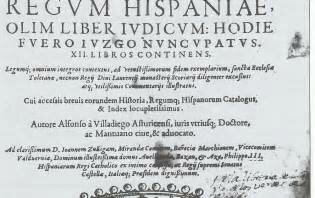 REGVM HISPANIAE,
OLIM LIBER IVDICVM: HODIE
FVERO IVZGO NVNCVPATVS.
XII. LIBROS CONTINENS.
Legumq; omnium integros contextus, ad vetustissimorum fidem exemplarium, sanctæ Ecclesiæ
Toletanæ, necnon Regij Diui Laurentij monasterij diligenter excussus:
atq; vtilissimis Commentarijs illustratus.
Cui accessit breuis eorundem Historia, Regumq; Hispanorum Catalogus,
& Index locupletissimus.
Autore Alfonso à Villadiego Asturicensi, iuris vtriusq; Doctore,
ac Mantuano ciue, & aduocato.
Ad clarissimum D. Ioannem Zuñigam, Miranda Comitem, Marchionem, Vicecomitem
Valduerniæ, Dominum illustrissimæ domus Bazan, & Aza, Philippo III.
Hispaniarum Regi Catholico et intimo ac Regij supremi Senatus
Castellæ, Italiæq; Præsidem dignissimum.